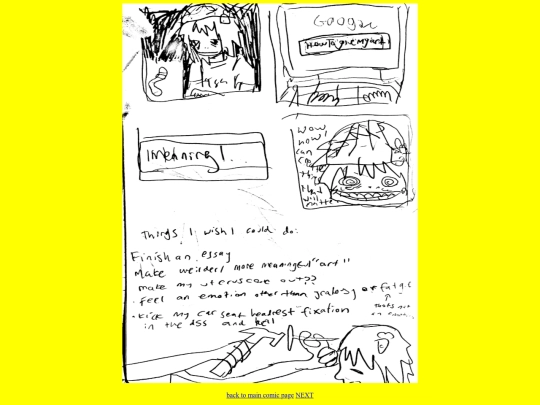 Google
How to give my art
meaning |
Wow
now I
can
that
will
Things I wish I could do:
Finish an essay
Make weirder/ more meaningful "art"
make my uterus
· feel an emotion other than jealosy or
· Kick my car seat headrest fixation
in the ass and
back to main comic page NEXT